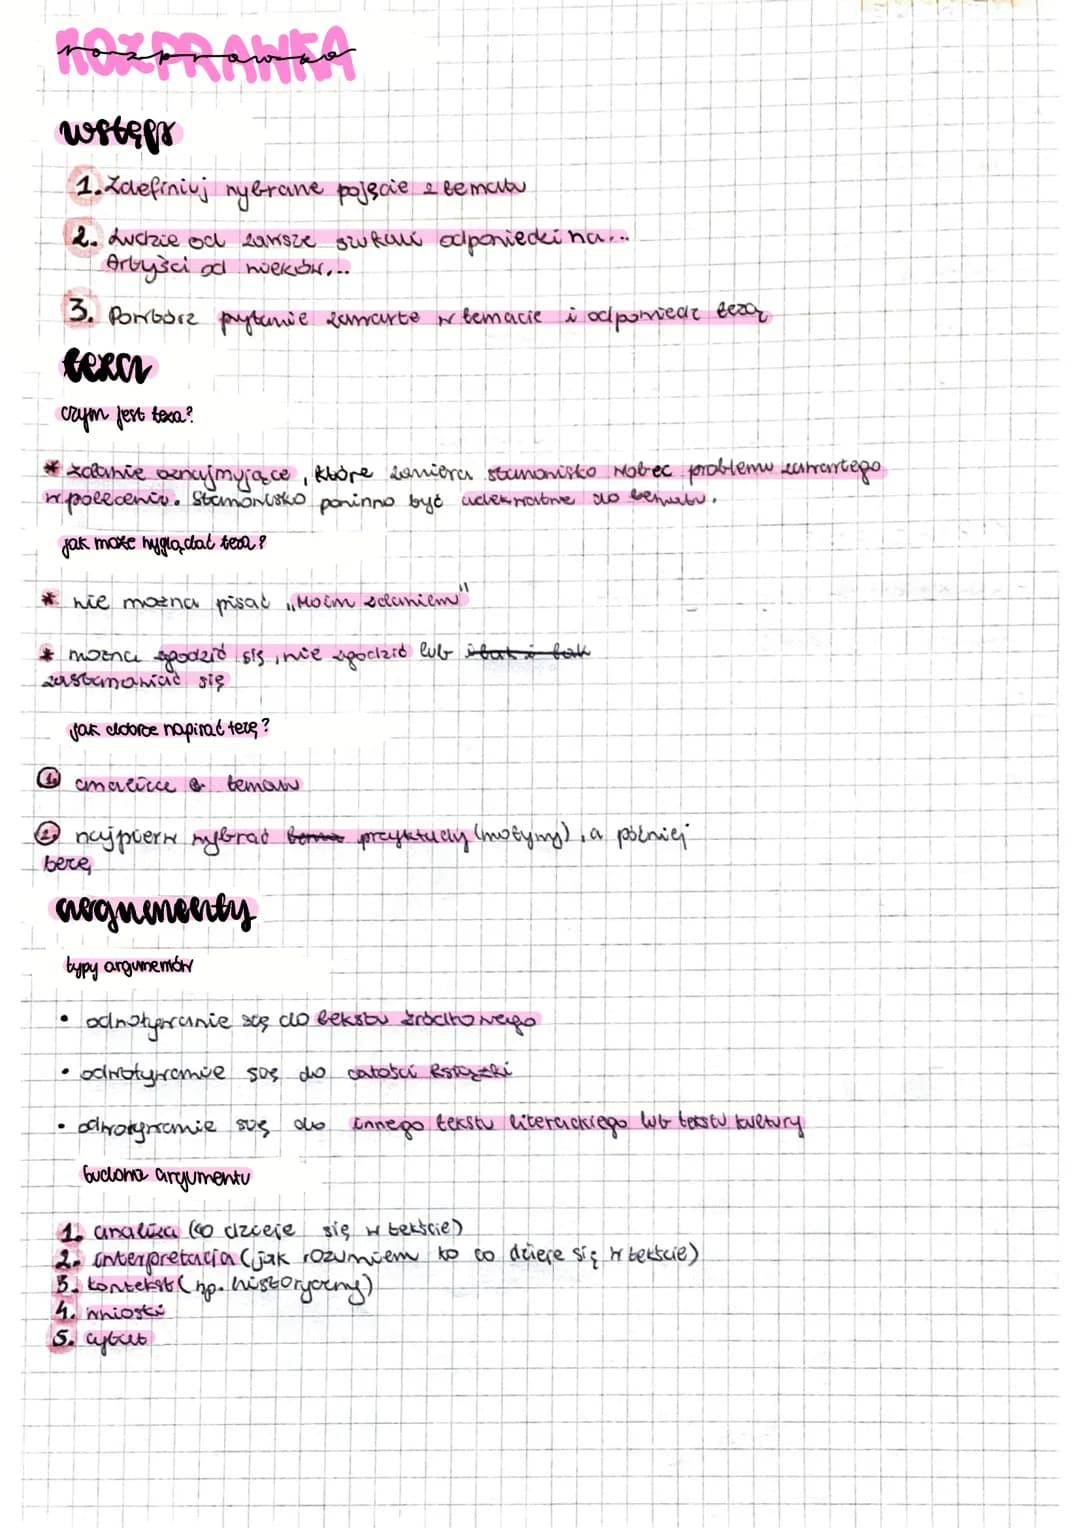 ROZPRAWKA
rozprawka
wstęp
1. Zdefiniuj wybrane pojęcie z tematu
2. Ludzie od zawsze szukali odpowiedzi na...
Artyści od wieków...
3. Powtórz pytanie zawarte w temacie i odpowiedz tezą
teza
czym jest teza?
* zdanie oznajmujące, które zawiera stanowisko wobec problemu zawartego
w poleceniu. Stanowisko powinno być adekwatne do tematu.
jak może wyglądać teza?
* nie można pisać „Moim zdaniem"
* można zgodzić się, nie zgodzić lub i tak i tak
zastanawiać się
jak dobrze napisać tezę?
1. analiza tematu
2. najpierw wybrać przykłady (motywy), a później
tezę
argumenty
typy argumentów
• odwoływanie się do tekstu źródłowego
• odwoływanie się do całości książki
• odwoływanie się do innego tekstu literackiego lub tekstu kultury
budowa argumentu
1. analiza (co dzieje się w tekście)
2. interpretacja (jak rozumiem to co dzieje się w tekście)
3. kontekst (np. historyczny)
4. wnioski
5. cytat